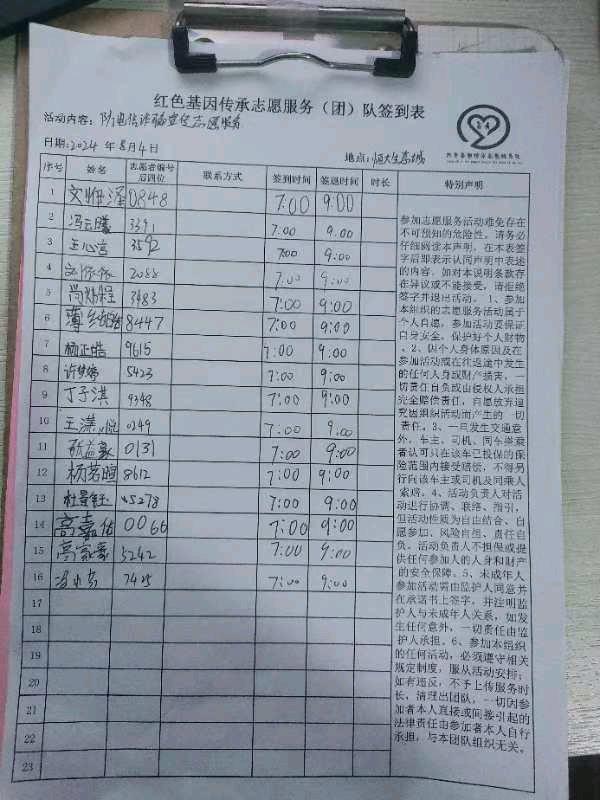 红色基因传承志愿服务（团）队签到表
活动内容：防电信诈骗宣传志愿服务
日期：2024年8月4日 地点：恒大生态城
序号 姓名 志愿者编号后四位 联系方式 签到时间 签退时间 时长 特别声明
1 0848 7:00 9:00
2 冯云腾 3391 7:00 9:00
3 王心言 3592 7:00 9:00
4 刘依依 2088 7:00 9:00
5 3483 7:00 9:00
6 8447 7:00 9:00
7 杨正皓 9615 7:00 9:00
8 许梦婷 5423 7:00 9:00
9 丁子淇 9348 7:00 9:00
10 王潇悦 0249 7:00 9:00
11 张益豪 0131 7:00 9:00
12 杨若晗 8612 7:00 9:00
13 杜景钰 5278 7:00 9:00
14 高嘉佑 0066 7:00 9:00
15 高家豪 5242 7:00 9:00
16 7425 7:00 9:00
17
18
19
20
21
22
23
参加志愿服务活动难免存在
不可预知的危险性，请务必
仔细阅读本声明，在本表签
字后即表示认同声明中表述
的内容，如对本说明条款存
在异议或不能接受，请拒绝
签字并退出活动。1、参加
本组织的志愿服务活动属于
个人自愿，参加活动要保证
自身安全，保护好个人财物
。2、因个人身体原因及在
参加活动或在往返途中发生
的任何人身或财产损害，一
切责任自负或由侵权人承担
完全赔偿责任，自愿放弃追
究因组织活动而产生的一切
责任。3、一旦发生交通意
外，车主、司机、同车搭乘
者认可只在该车已投保的保
险范围内接受赔偿，不得另
行向该车主或司机及同乘人
索赔。4、活动负责人对活
动进行协调、联络、指引，
但活动性质为自由结合、自
愿参加、风险自担、责任自
负。活动负责人不担保或提
供任何参加人的人身和财产
的安全保障。5、未成年人
参加活动需由监护人同意并
在承诺书上签字，并注明监
护人与未成年人关系，如发
生任何意外，一切责任由监
护人承担。6、参加本组织
的任何活动，必须遵守相关
规定制度，服从活动安排；
如有违反，不予上传服务时
长，清理出团队，一切因参
加者本人直接或间接引起的
法律责任由参加者本人自行
承担，与本团队组织无关。